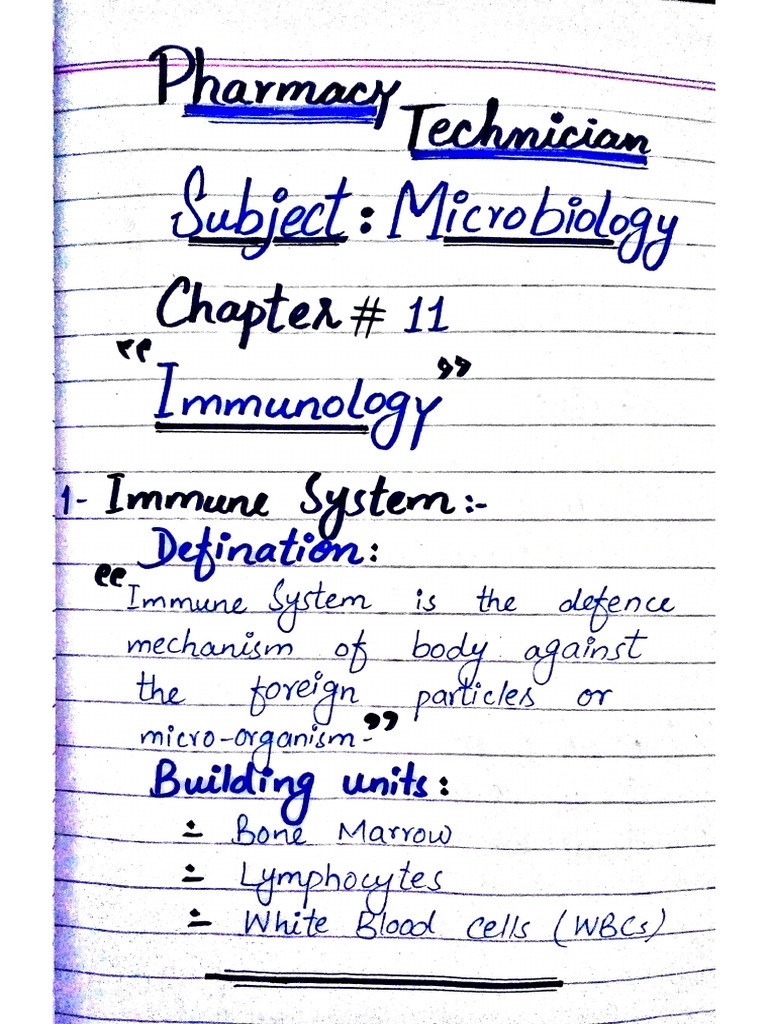 Pharmacy
Technician
Subject: Microbiology
Chapter # 11
"Immunology"
1- Immune System:-
Defination:
"Immune System is the defence
mechanism of body against
the foreign particles or
micro-organism-"
Building units:
÷ Bone Marrow
÷ Lymphocytes
÷ White Blood Cells (WBCs)